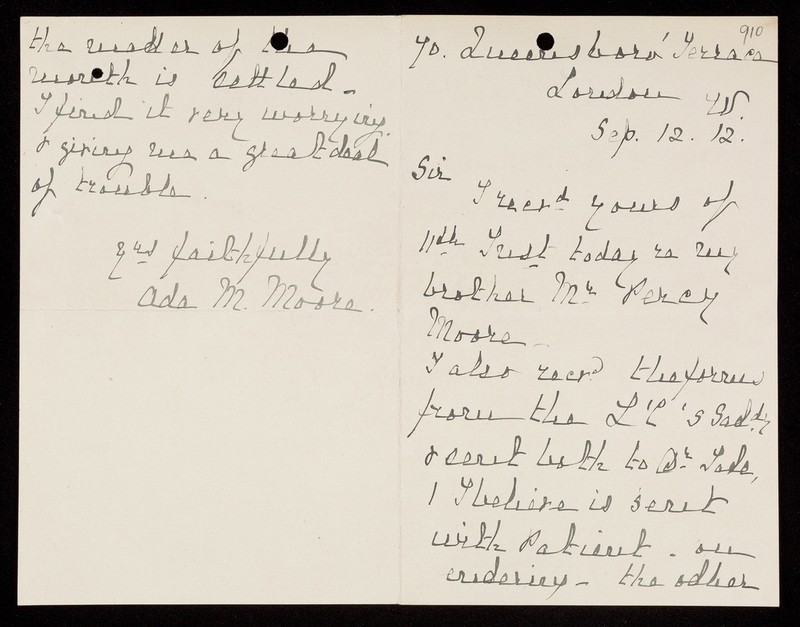 910
70. Queensboro' Terrace
London W.
Sep. 12. 12.
Sir
I recvd yours of
11th Inst today re my
brother Mr Percy
Moore -
I also recvd the forms
from the L'C's Satdy
& sent both to Dr
1 I believe is sent
with Patient - on
entering - the other
the matter of the
month is settled -
I find it very worrying
& giving me a great deal
of trouble.
yrs faithfully
Ada M. Moore.